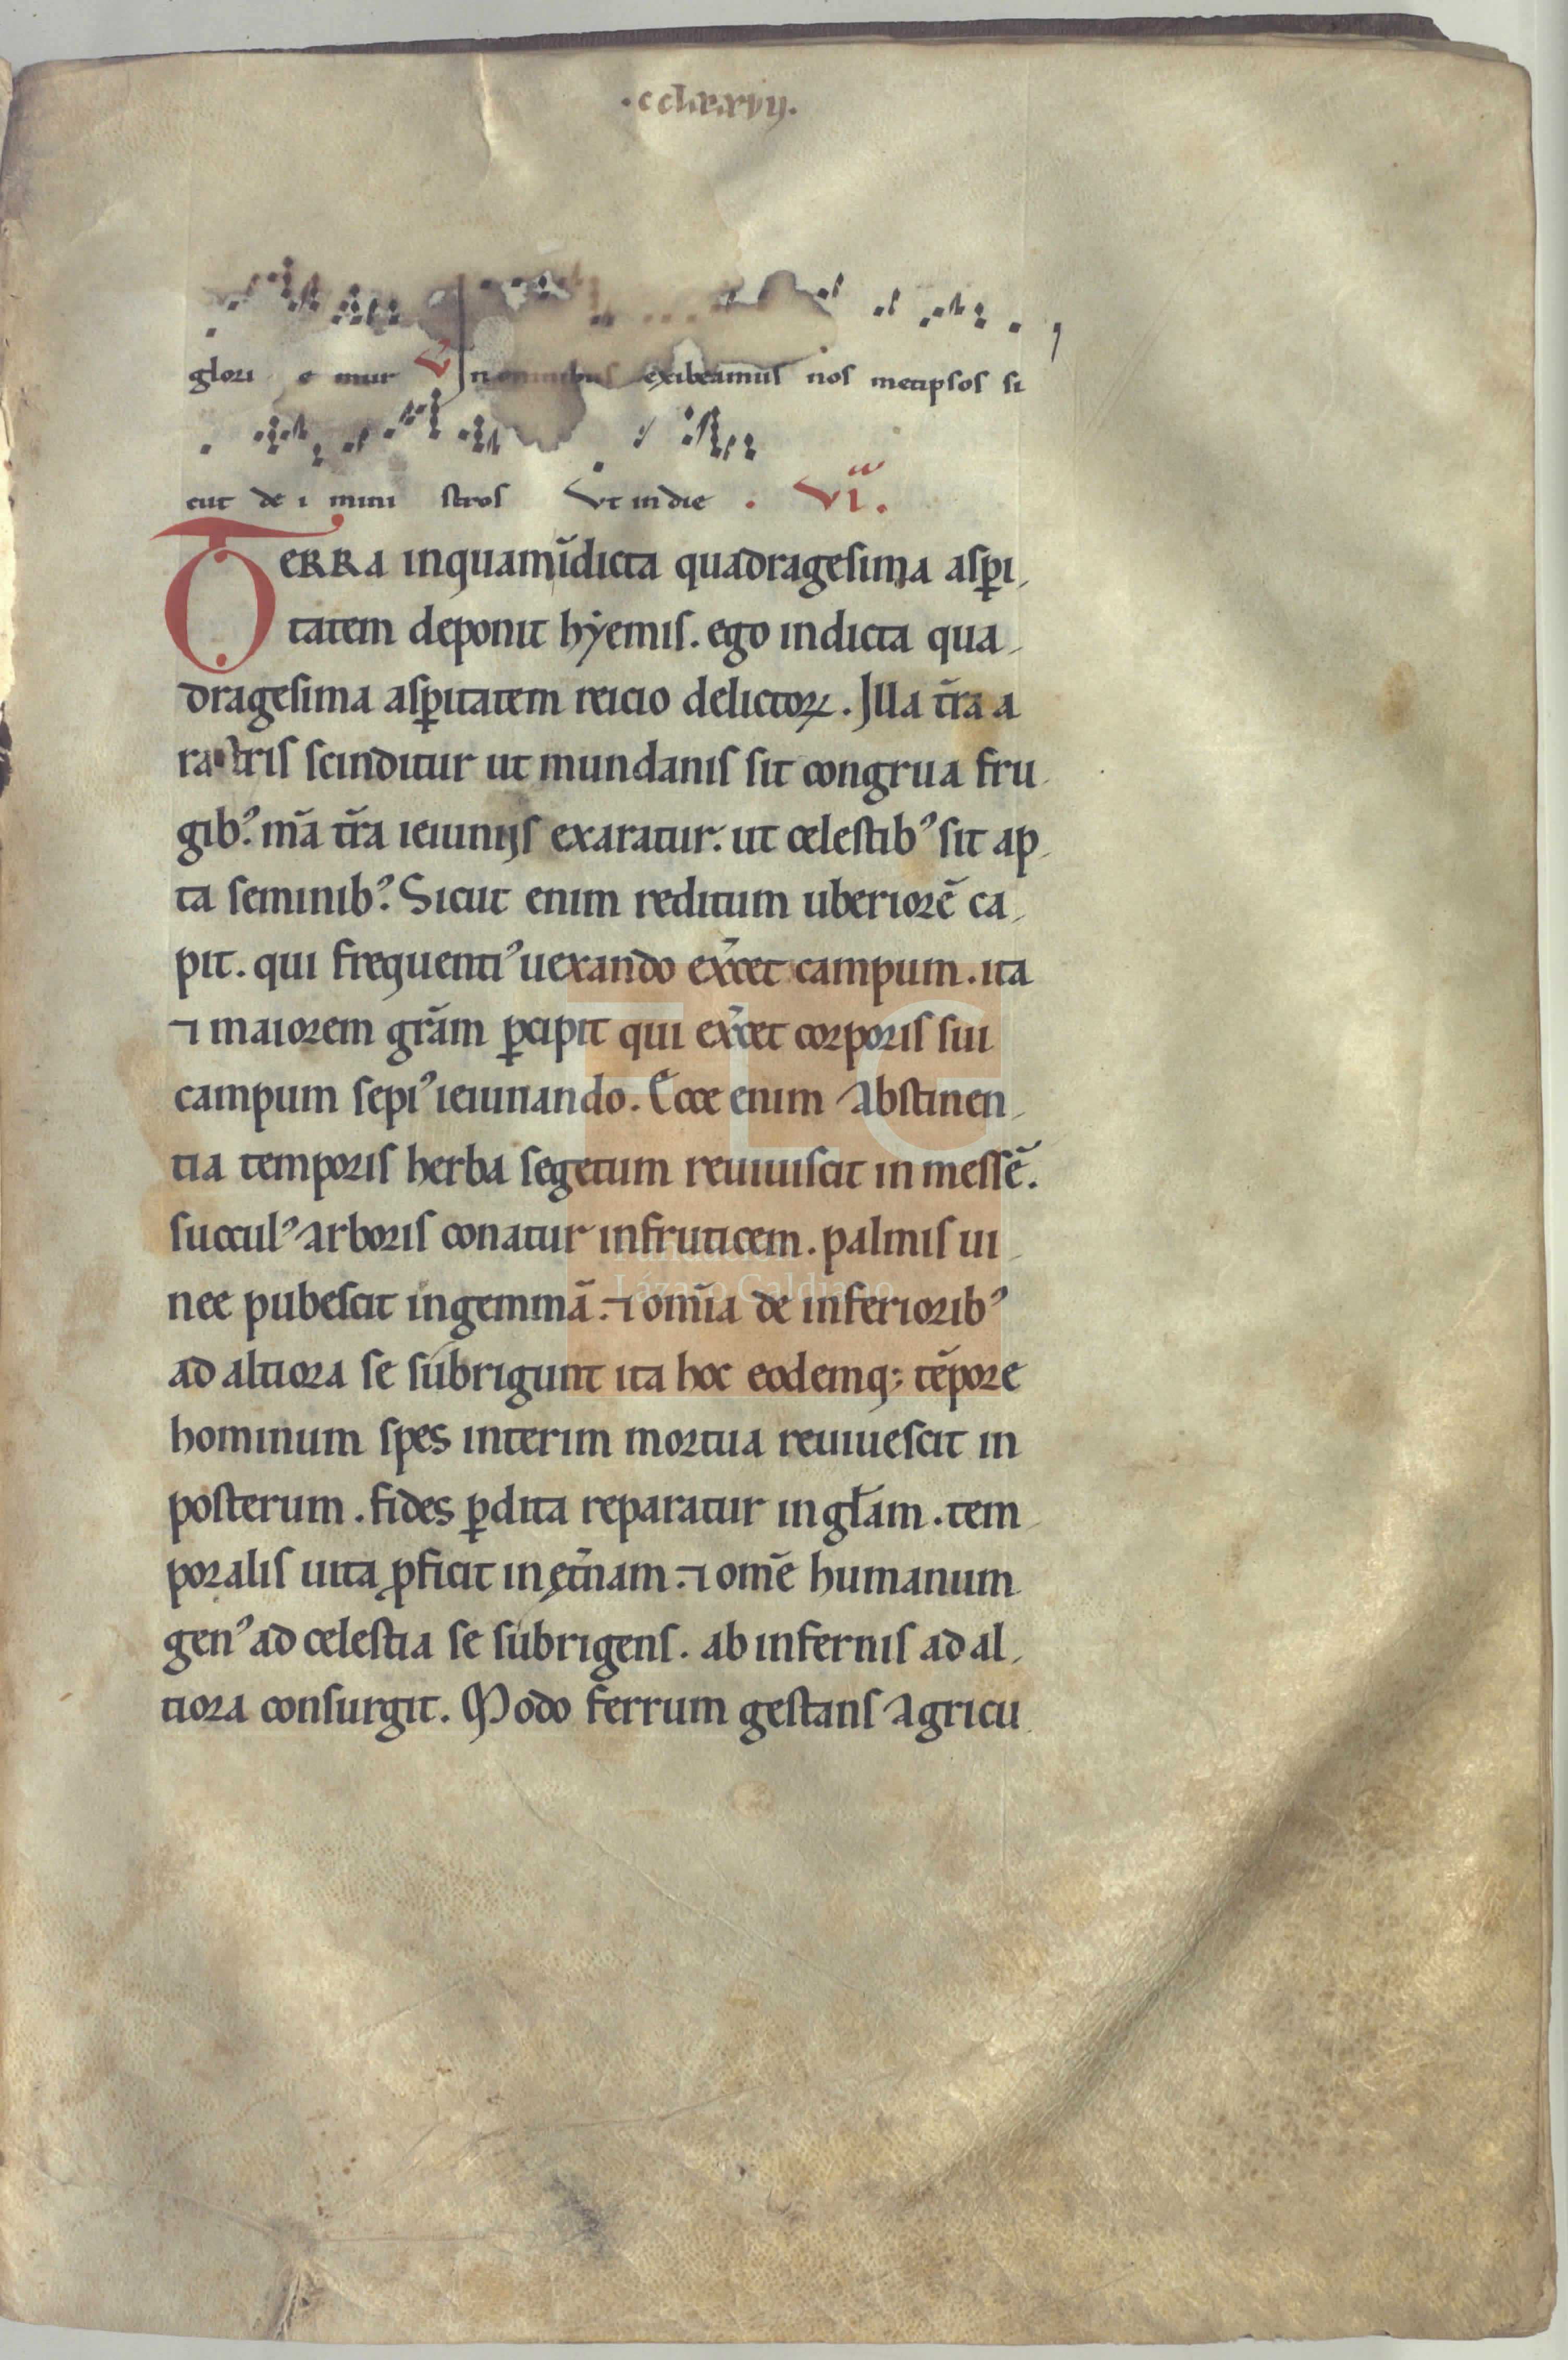 .cclxxxvij.
glori e mur V In omnibus exibeamus nos metipsos si
cut de i mini stros Vt in die . VIII.
TERRA inquam īdicta quadragesima asꝑi
tatem deponit hẏemis. ego indicta qua
dragesima asꝑitatem reicio delictoꝝ. Illa t̄ra a
ratris scinditur ut mundanis sit congrua fru
gibꝰ. m̄a t̄ra ieiunijs exaratur. ut celestibꝰ sit ap
ta seminibꝰ. Sicut enim reditum uberiorē ca
pit. qui frequentiꝰ uexando ex̄cet campum. ita
⁊ maiorem grām ꝑcipit qui ex̄cet corporis sui
campum sepiꝰ ieiunando. Ecce enim abstinen
tia temporis herba segetum reuiuiscit in messē.
succulꝰ arboris conatur infruticem. palmis ui
nee pubescit in gemmā. ⁊ om̄ia de inferioribꝰ
ad altiora se subrigunt ita hoc eodemq; tēpore
hominum spes interim mortua reuiuescit in
posterum. fides ꝑdita reparatur in gl̄am. tem
poralis uita ꝓficit in ęt̄nam. ⁊ om̄e humanum
genꝰ ad celestia se subrigens. ab infernis ad al
tiora consurgit. Modo ferrum gestans agricu
FLG
Fundación
Lázaro Galdiano